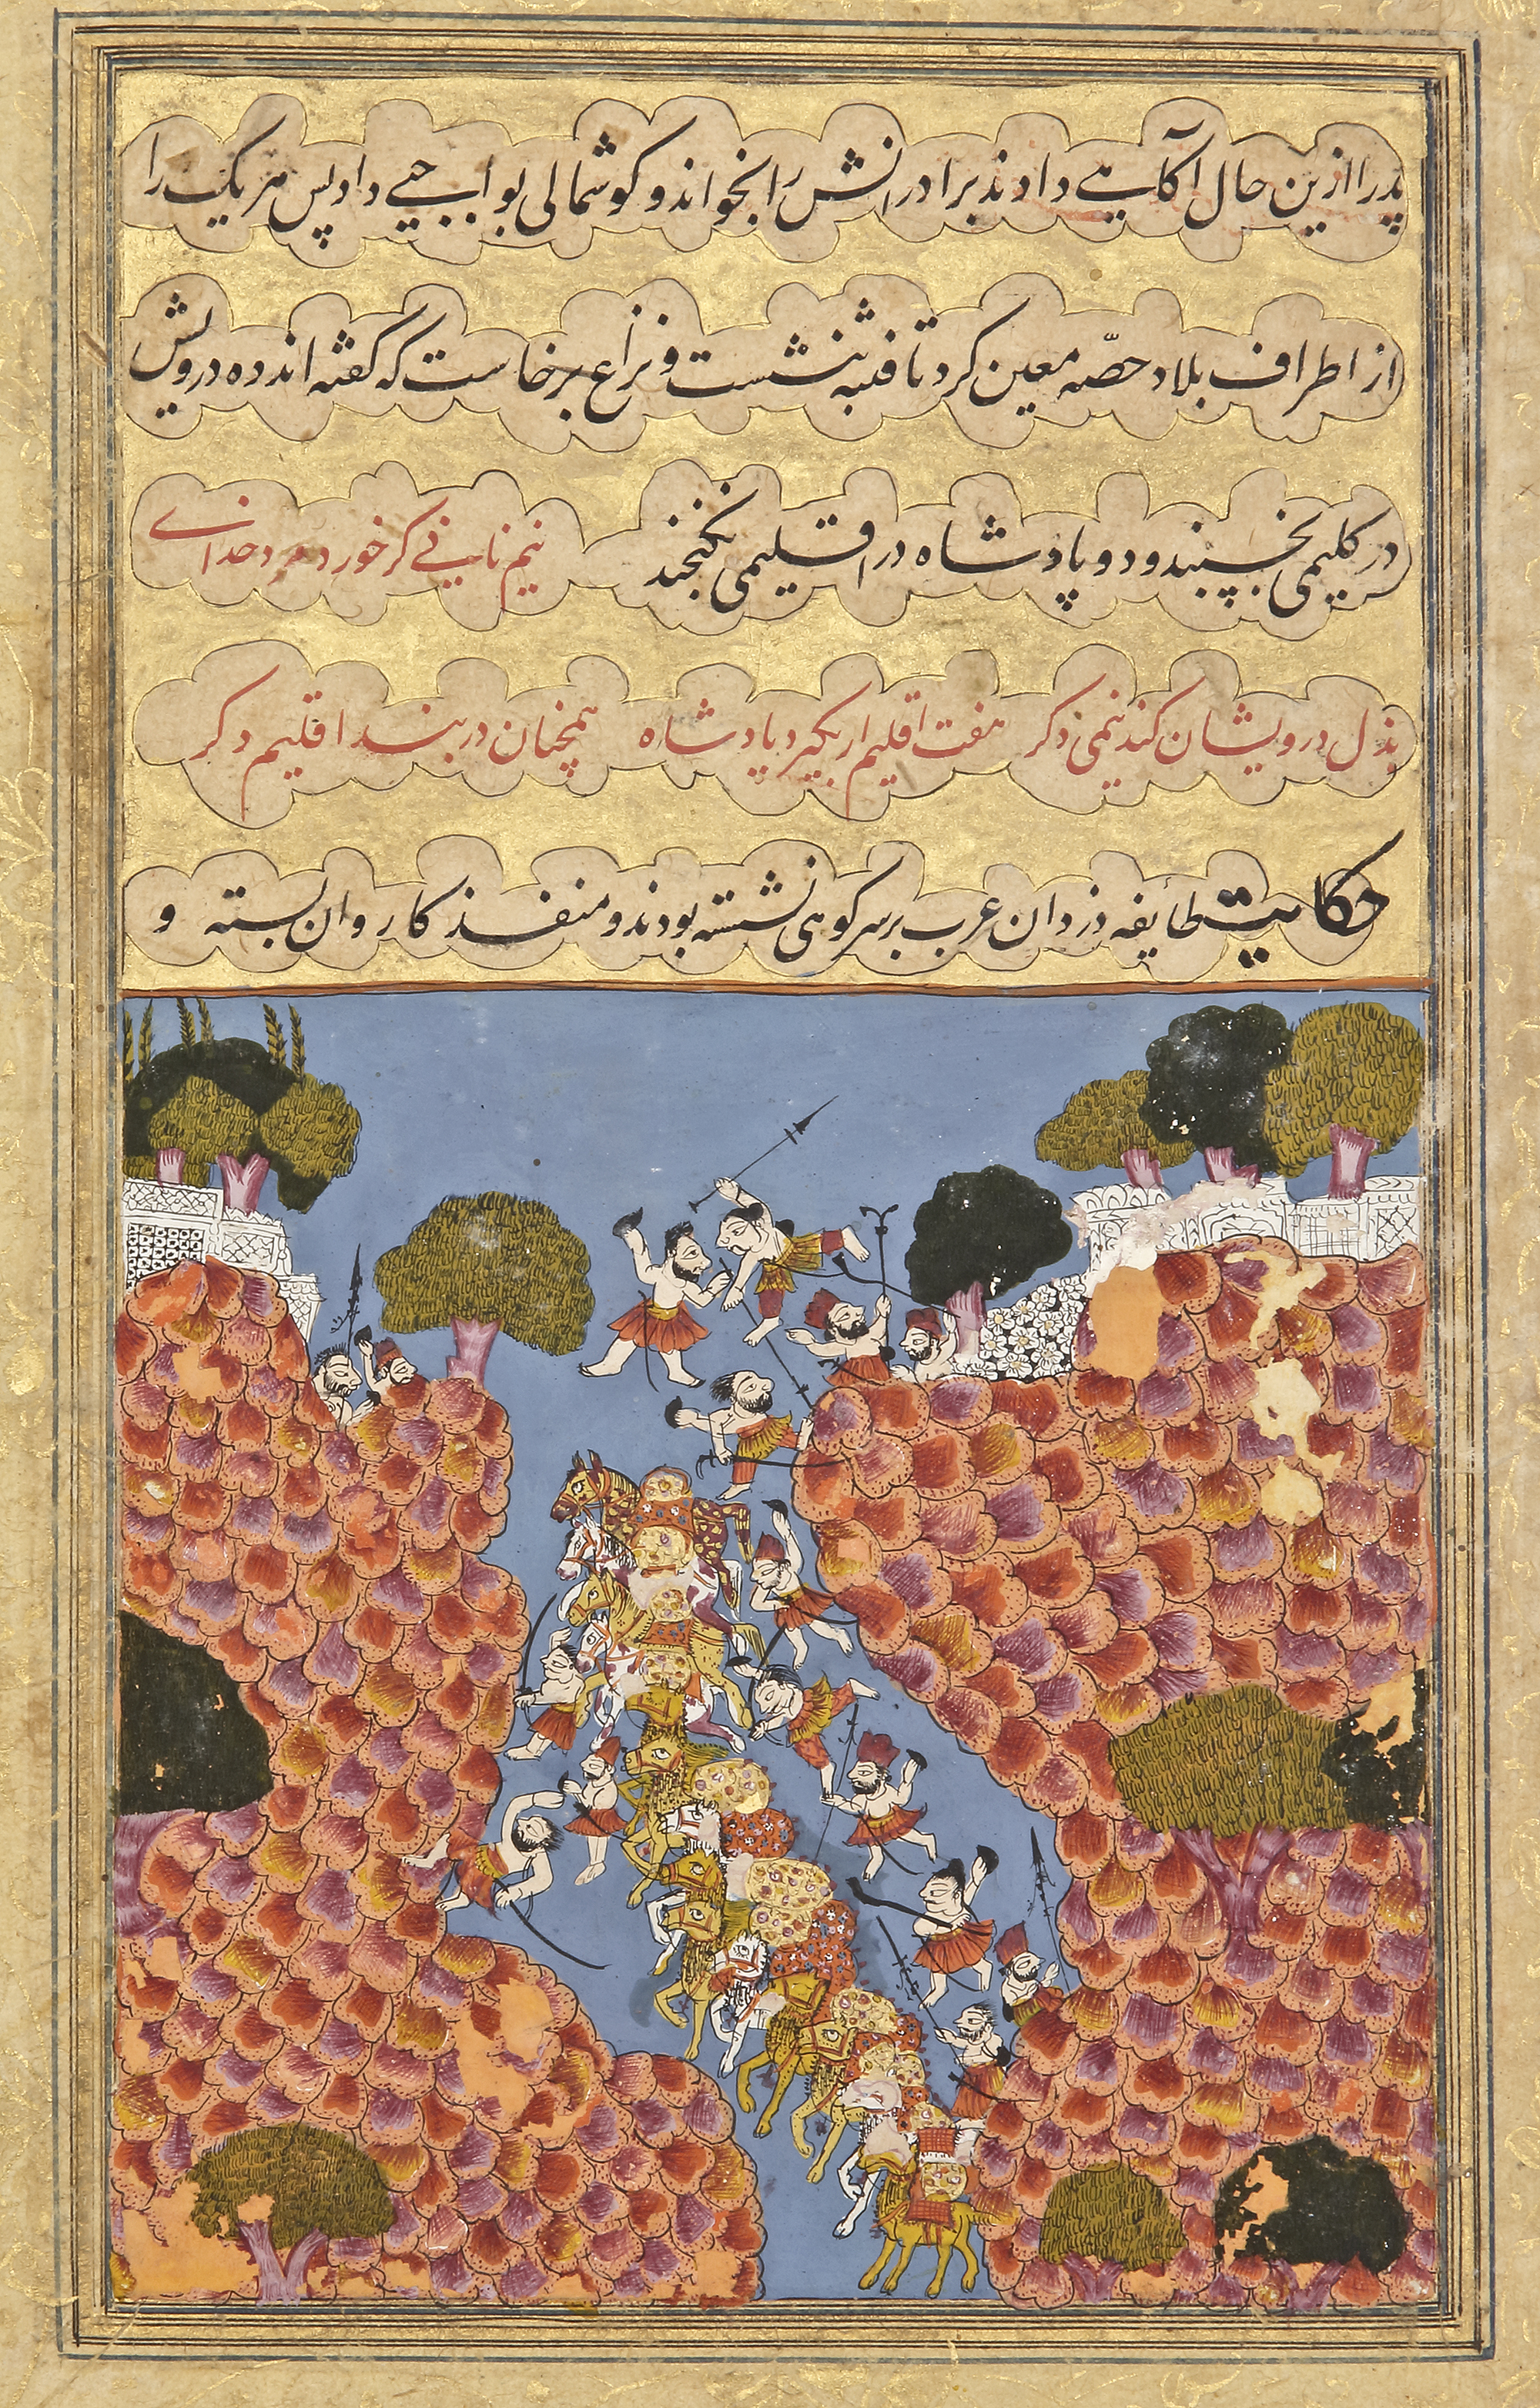 پدر را ازین حال آگاهی دادند برادرانش را بخواند و گوشمالی بواجبی داد پس هر یک را
از اطراف بلاد حصّه معین کرد تا فتنه بنشست و نزاع برخاست که گفته اند ده درویش
در گلیمی بخسپند و دو پادشاه در اقلیمی نگنجند نیم نانی گر خورد مرد خدای
بذل درویشان کند نیمی دگر هفت اقلیم ار بگیرد پادشاه همچنان در بند اقلیم دگر
حکایت طایفه دزدان عرب بر سر کوهی نشسته بودند و منفذ کاروان بسته و